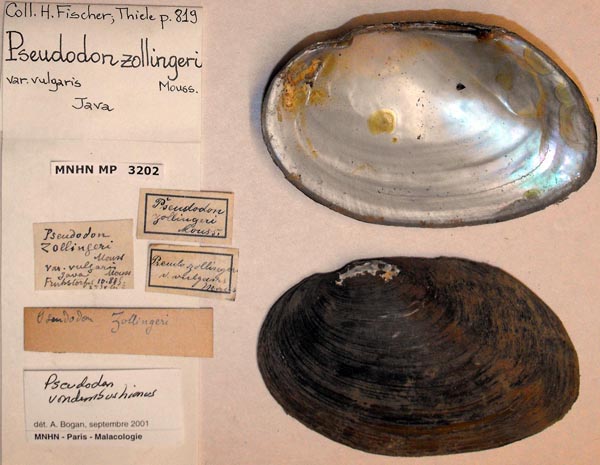 Coll. H. Fischer, Thiele p. 819
Pseudodon zollingeri
var. vulgaris Mouss.
Java
MNHN MP 3202
Pseudodon
zollingeri
Mouss.
Pseudodon
Zollingeri
Mouss
var. vulgaris
Java Mouss
Fruhstorfer
Pseudo zollinger
v. vulgaris
Mouss
Pseudodon Zollingeri
Pseudodon
vondembuschianus
dét. A. Bogan, septembre 2001
MNHN - Paris - Malacologie